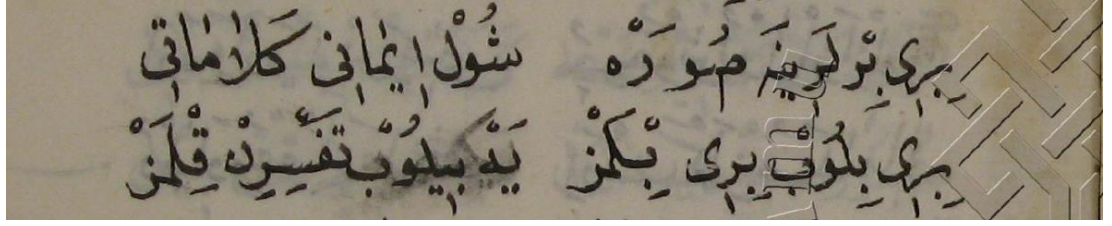 بِرِى بِرْلَرِينَه صُورَدْه شُوْلْ ايمَانِى كَلَامَاتِى
بِرِى بِلُوبْ بِرِى بِلْمَزْ يَه بِيلُوبْ تَفْسِيرِنْ قِلْمَزْ